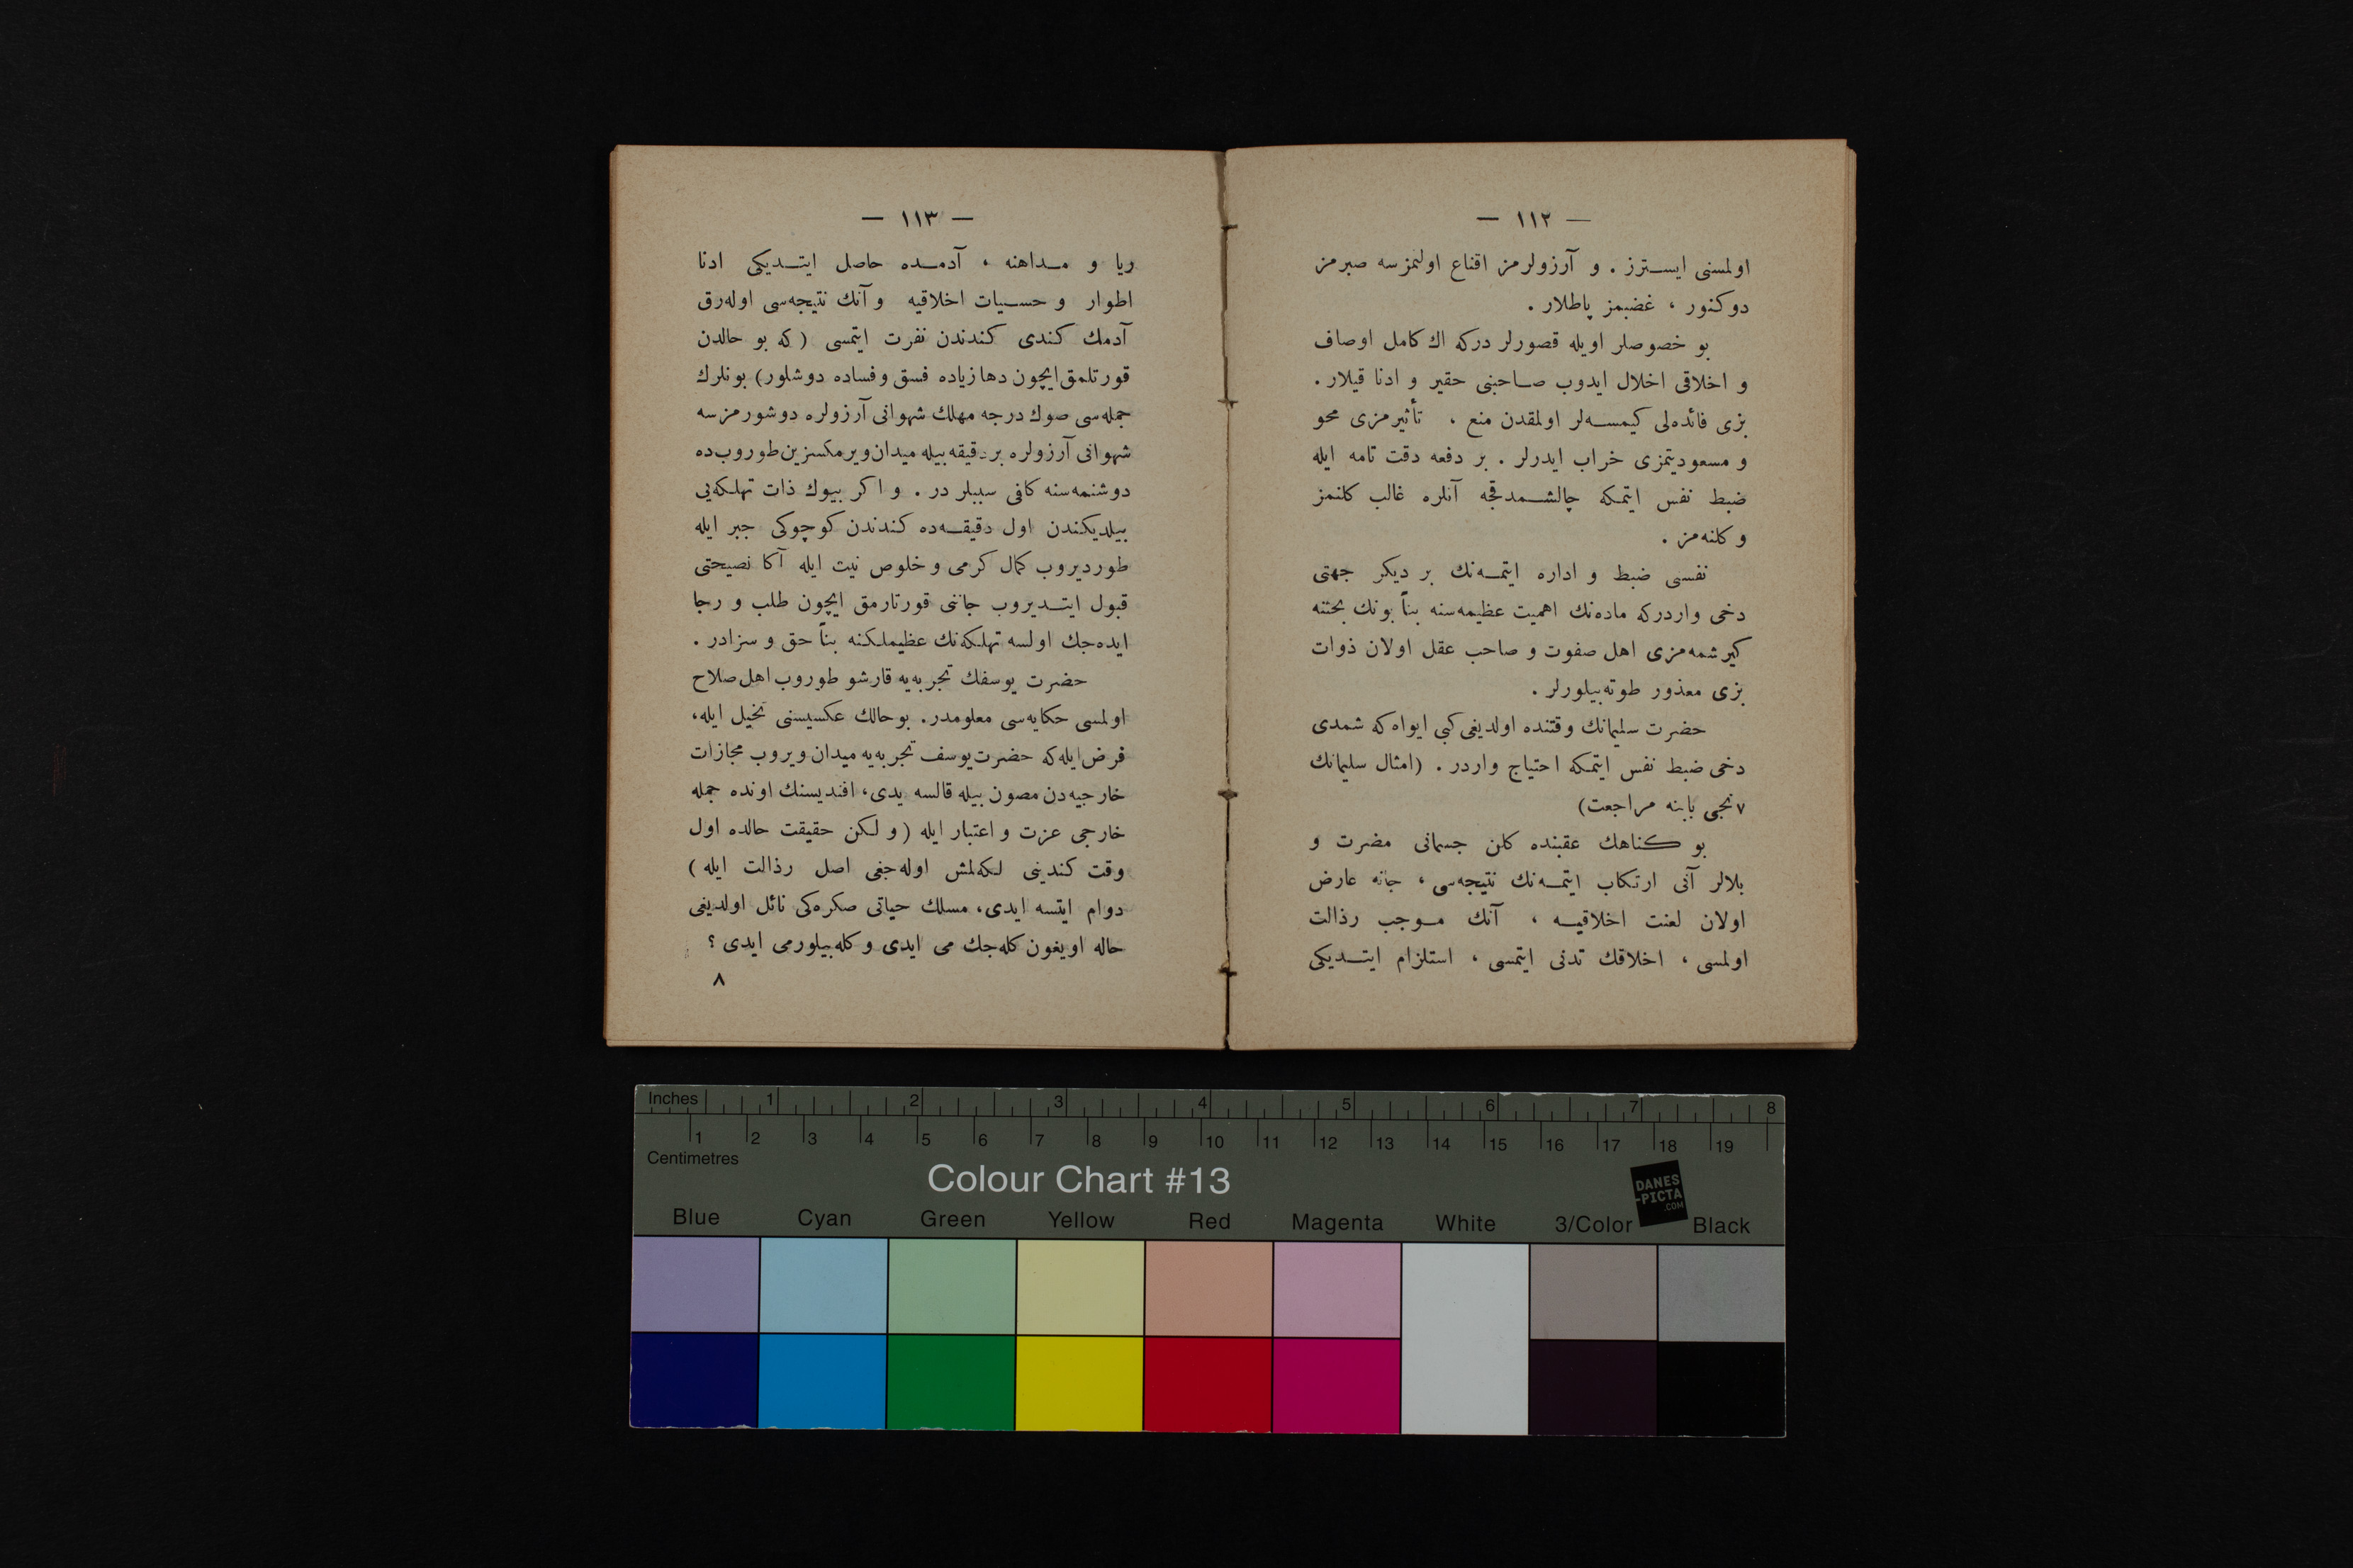 — ١١٢ —
اولمسنی ایسترز . و آرزولرمز اقناع اولنمزسه صبرمز
دوكنور ، غضبمز پاطلار .
بو خصوصلر اویله قصورلر دركه اك كامل اوصاف
و اخلاقی اخلال ایدوب صاحبنی حقیر و ادنا قیلار .
بزی فائده‌لی كیمسه‌لر اولمقدن منع ، تأثیرمزی محو
و مسعودیتمزی خراب ایدرلر . بر دفعه دقت تامه ایله
ضبط نفس ایتمكه چالشمدقجه آنلره غالب كلنمز
و كلنه‌مز .
نفسی ضبط و اداره ایتمه‌نك بر دیكر جهتی
دخی واردركه ماده‌نك اهمیت عظیمه‌سنه بناً بونك بحثنه
كیرشمه‌مزی اهل صفوت و صاحب عقل اولان ذوات
بزی معذور طوته‌بیلورلر .
حضرت سلیمانك وقتنده اولدیغی كبی ایواه كه شمدی
دخی ضبط نفس ایتمكه احتیاج واردر . (امثال سلیمانك
٧نجی بابنه مراجعت)
بو كناهك عقبنده كلن جسمانی مضرت و
بلالر آنی ارتكاب ایتمه‌نك نتیجه‌سی ، جانه عارض
اولان لعنت اخلاقیه ، آنك موجب رذالت
اولمسی ، اخلاقك تدنی ایتمسی ، استلزام ایتدیكی
— ١١٣ —
ریا و مداهنه ، آدمده حاصل ایتدیكی ادنا
اطوار و حسیات اخلاقیه و آنك نتیجه‌سی اوله‌رق
آدمك كندی كندندن نفرت ایتمسی ( كه بو حالدن
قورتلمق ایچون دها زیاده فسق و فساده دوشلور) بونلرك
جمله‌سی صوك درجه مهلك شهوانی آرزولره دوشورمزسه
شهوانی آرزولره بر دقیقه بیله میدان ویرمكسزین طوروب ده
دوشنمه‌سنه كافی سببلر در . و اكر بیوك ذات تهلكه‌یی
بیلدیكندن اول دقیقه‌ده كندندن كوچوكی جبر ایله
طوردیروب كمال كرمی و خلوص نیت ایله آكا نصیحتی
قبول ایتدیروب جاننی قورتارمق ایچون طلب و رجا
ایده‌جك اولسه تهلكه‌نك عظیملكنه بناً حق و سزادر .
حضرت یوسفك تجربه‌یه قارشو طوروب اهل صلاح
اولمسی حكایه‌سی معلومدر. بو حالك عكسیسنی تخیل ایله،
فرض ایله كه حضرت یوسف تجربه‌یه میدان ویروب مجازات
خارجیه‌دن مصون بیله قالسه یدی، افندیسنك اونده جمله
خارجی عزت و اعتبار ایله ( و لكن حقیقت حالده اول
وقت كندینی لكه‌لمش اوله‌جغی اصل رذالت ایله )
دوام ایتسه ایدی، مسلك حیاتی صكره‌كی نائل اولدیغی
حاله اویغون كله‌جك می ایدی و كله‌بیلورمی ایدی ؟
٨
Inches 1 2 3 4 5 6 7 8
1 2 3 4 5 6 7 8 9 10 11 12 13 14 15 16 17 18 19
Centimetres
Colour Chart #13
DANES
-PICTA
.COM
Blue Cyan Green Yellow Red Magenta White 3/Color Black